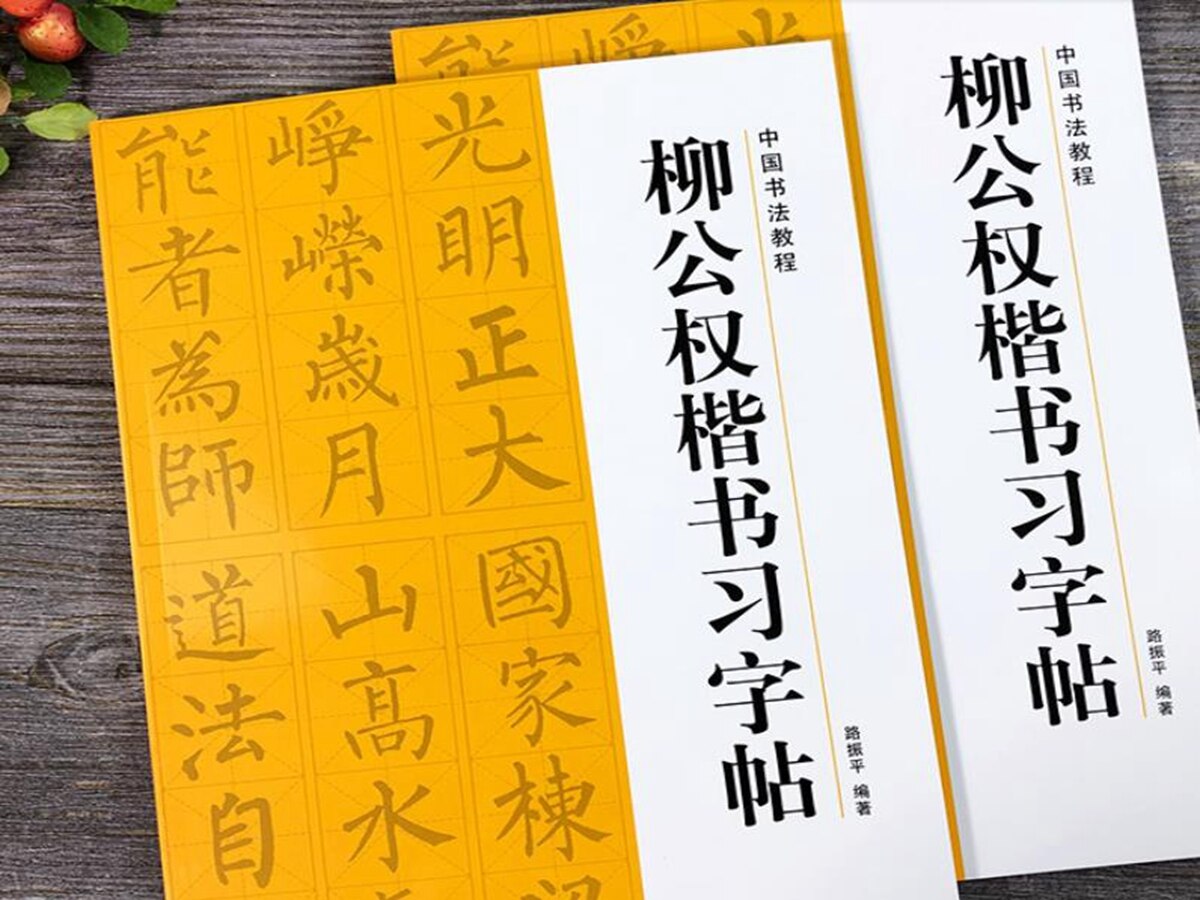 中国书法教程
柳公权楷书习字帖
路振平 编著
光明正大
國家棟
峥嶸歲月
山高水
能者為師
道法自
中国书法教程
柳公权楷书习字帖
路振平 编著
能
峥
光